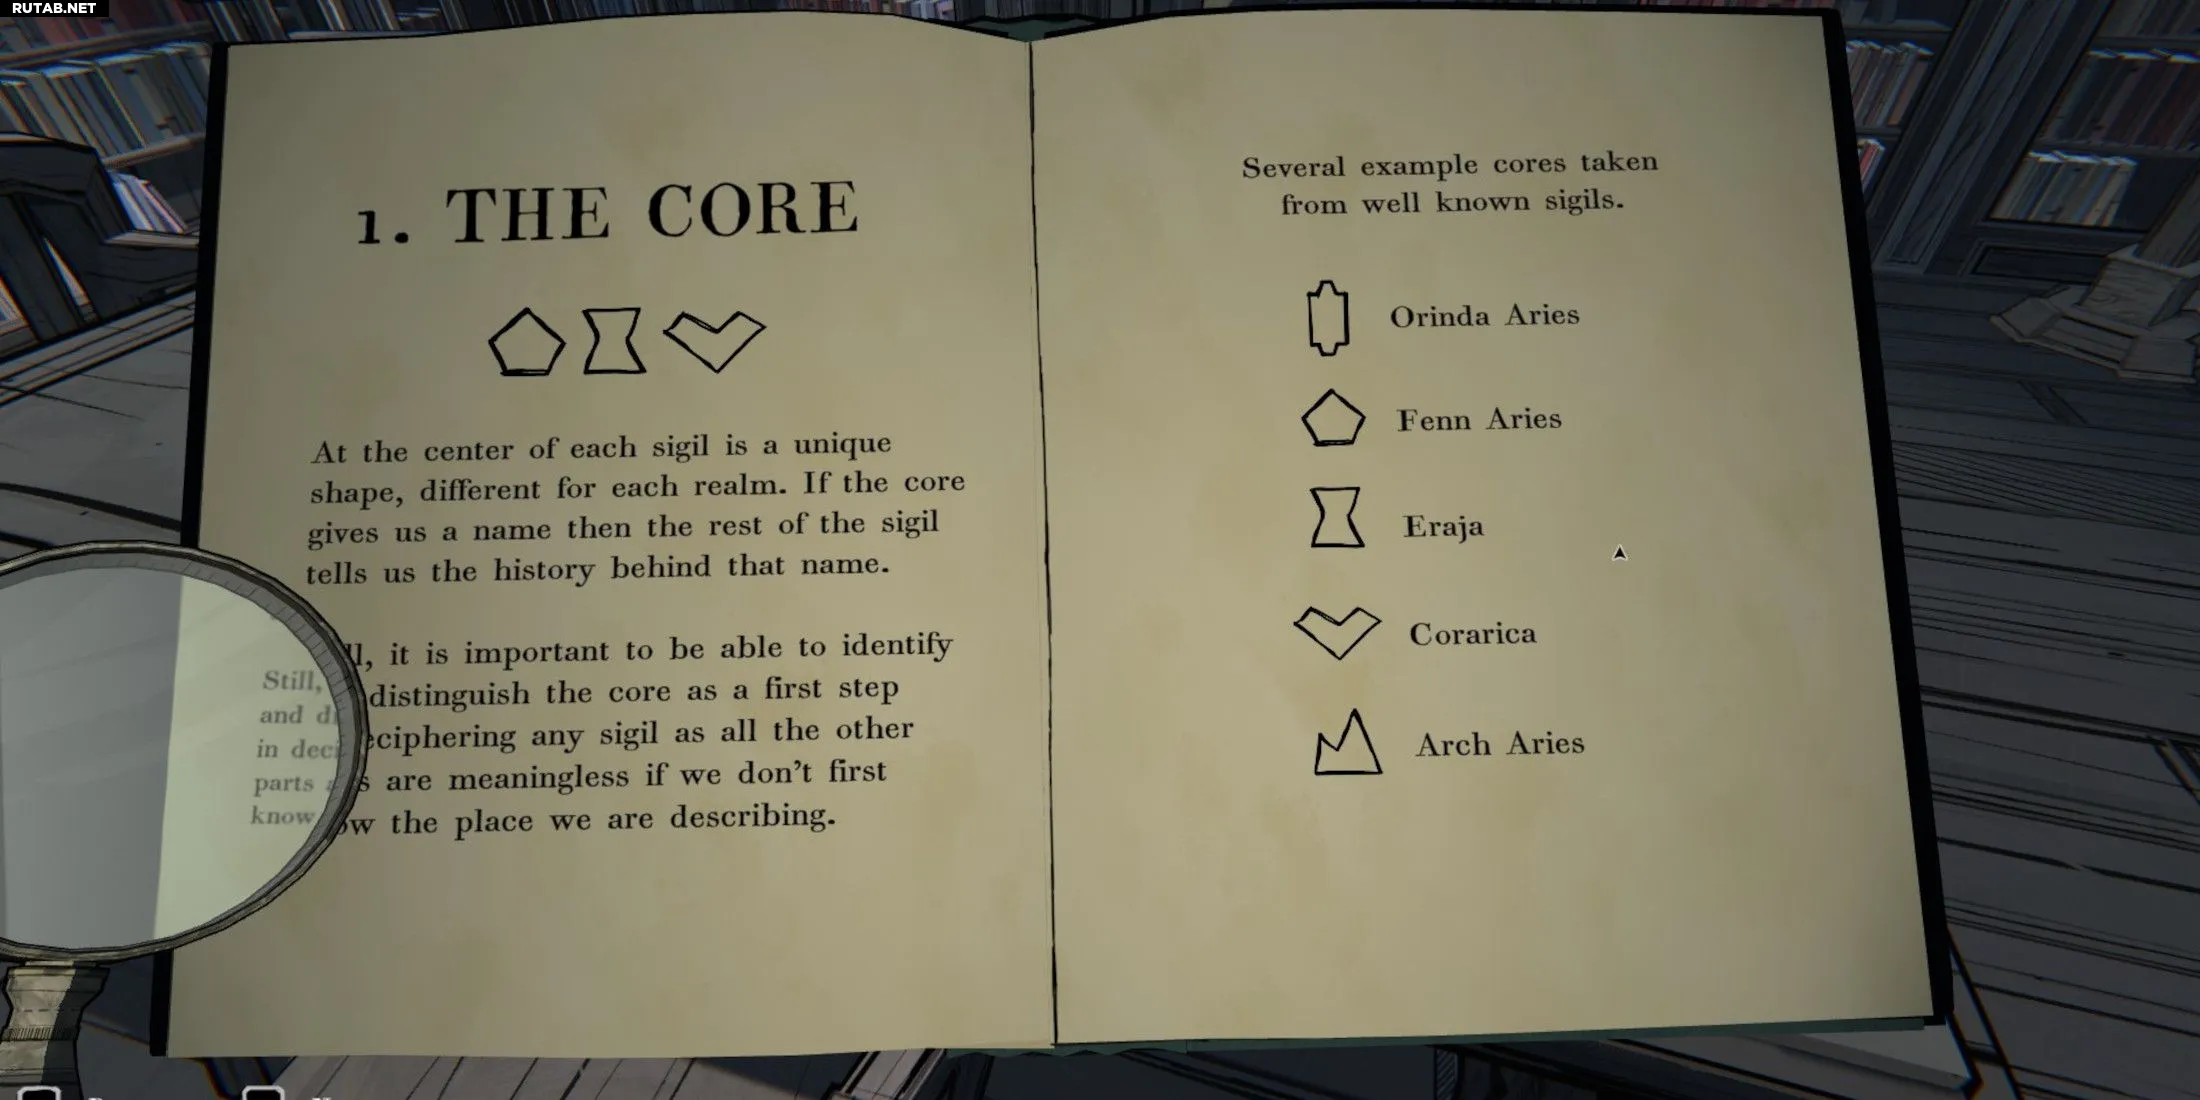 RUTAB.NET
1. THE CORE
At the center of each sigil is a unique
shape, different for each realm. If the core
gives us a name then the rest of the sigil
tells us the history behind that name.
Still, it is important to be able to identify
and distinguish the core as a first step
in deciphering any sigil as all the other
parts are meaningless if we don't first
know the place we are describing.
Several example cores taken
from well known sigils.
Orinda Aries
Fenn Aries
Eraja
Corarica
Arch Aries